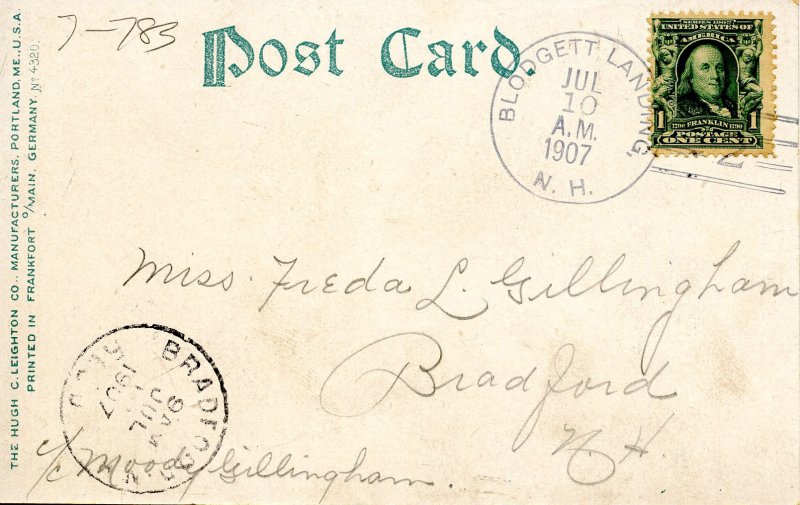 7-783
Post Card.
BLODGETT LANDING,
JUL
10
A.M.
1907
N. H.
SERIES 1902
UNITED STATES OF
AMERICA
1706 FRANKLIN 1790
1 POSTAGE 1
ONE CENT
THE HUGH C. LEIGHTON CO., MANUFACTURERS, PORTLAND, ME., U.S.A.
PRINTED IN FRANKFORT O/MAIN, GERMANY. No 4320.
Miss. Freda L. Gillingham
Bradford
N. H.
c/c Moody Gillingham.
BRADFORD
JUL
9 AM
1907
REC'D